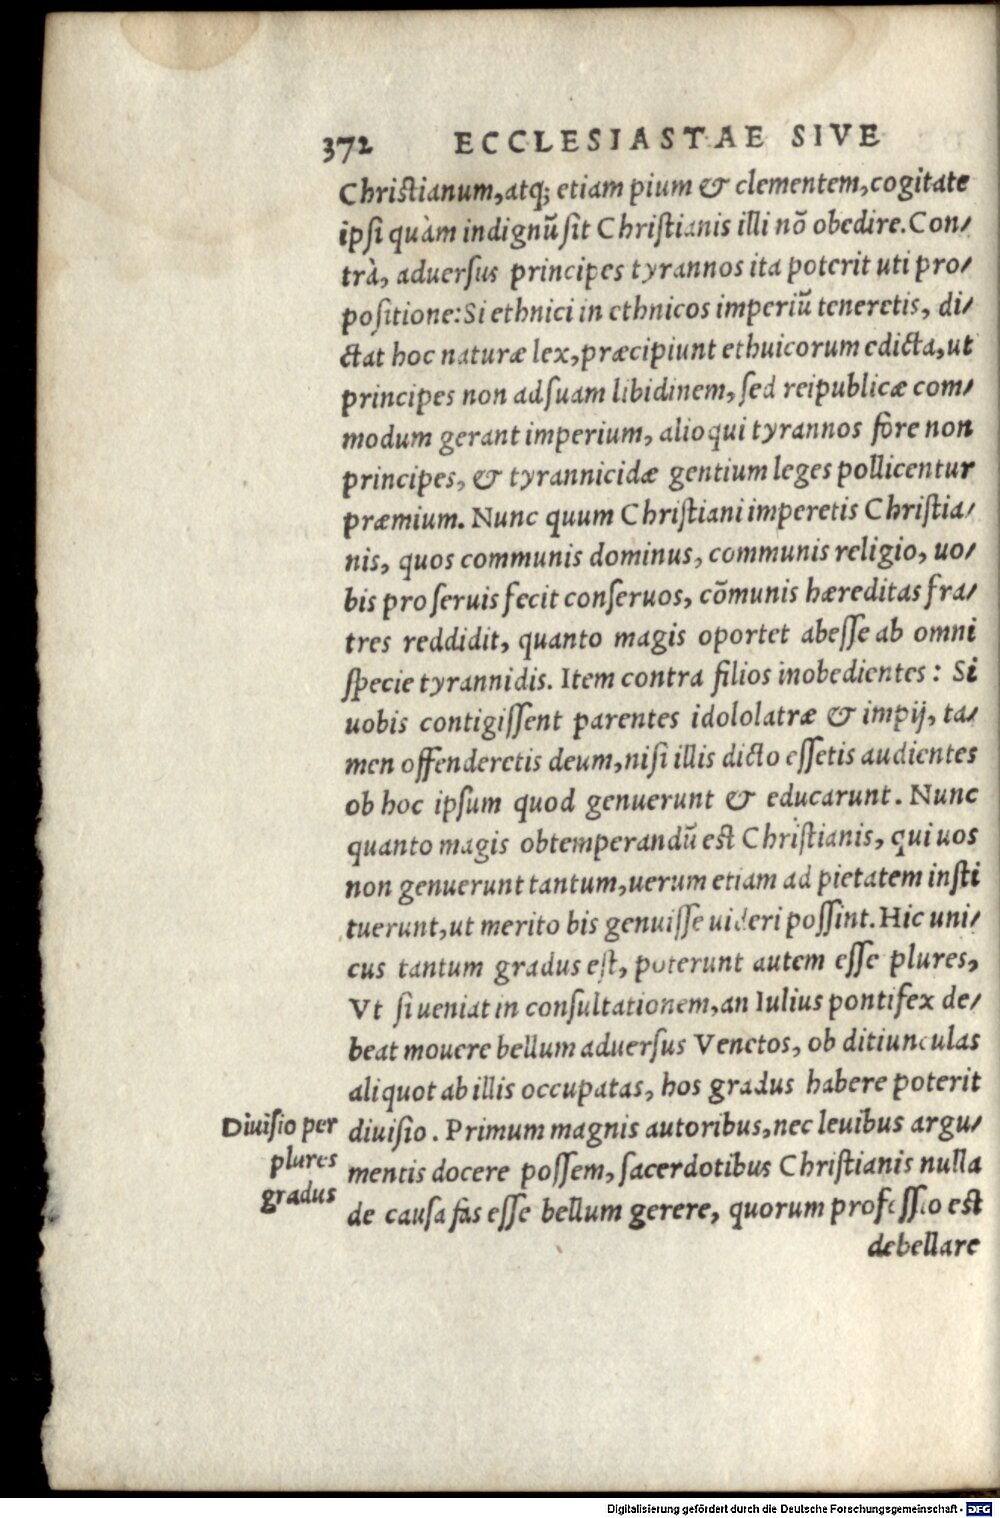 372 ECCLESIASTAE SIVE
Christianum,atq; etiam pium & clementem,cogitate
ipsi quàm indignū sit Christianis illi nō obedire. Con/
trà, aduersus principes tyrannos ita poterit uti pro/
positione: Si ethnici in ethnicos imperiū teneretis, di/
ctat hoc naturæ lex, præcipiunt ethuicorum edicta, ut
principes non ad suam libidinem, sed reipublicæ com/
modum gerant imperium, alioqui tyrannos fore non
principes, & tyrannicidæ gentium leges pollicentur
præmium. Nunc quum Christiani imperetis Christia/
nis, quos communis dominus, communis religio, uo/
bis pro seruis fecit conseruos, cōmunis hæreditas fra/
tres reddidit, quanto magis oportet abesse ab omni
specie tyrannidis. Item contra filios inobedientes: Si
uobis contigissent parentes idololatræ & impij, ta/
men offenderetis deum, nisi illis dicto essetis audientes
ob hoc ipsum quod genuerunt & educarunt. Nunc
quanto magis obtemperandū est Christianis, qui uos
non genuerunt tantum, uerum etiam ad pietatem insti
tuerunt, ut merito bis genuisse uideri possint. Hic uni/
cus tantum gradus est, poterunt autem esse plures,
Vt si ueniat in consultationem, an Iulius pontifex de/
beat mouere bellum aduersus Venetos, ob ditiunculas
aliquot ab illis occupatas, hos gradus habere poterit
Diuisio per
plures
gradus
diuisio. Primum magnis autoribus, nec leuibus argu/
mentis docere possem, sacerdotibus Christianis nulla
de causa fas esse bellum gerere, quorum professio est
debellare
Digitalisierung gefördert durch die Deutsche Forschungsgemeinschaft - DFG